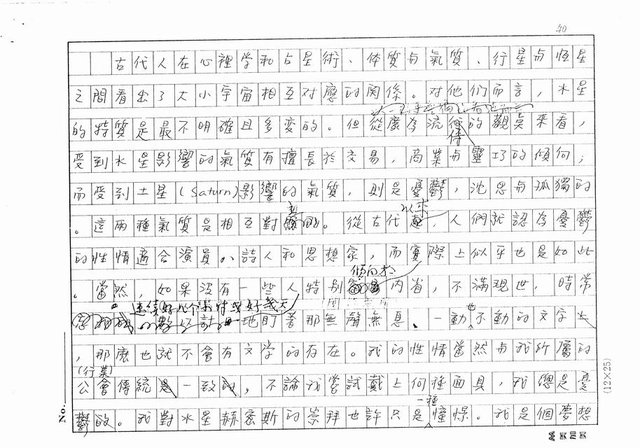 40
古代人在心裡学和占星術、体質与氣質、行星与恒星
之間看出了大小宇宙相互对應的関係。对他们而言，水星
的特質是最不明確且多变的。但從廣為流傳的觀点來看，
受到水星影響的氣質有擅長於交易，商業与靈巧的傾向，
而受到土星(Saturn)影響的氣質，則是憂鬱，沈思与孤獨的
。這兩種氣質是相互對的。從古代以來，人們就認為憂鬱
的性情適合演員、詩人和思想家，而實際上似乎也是如此
。當然，如果沒有一些人特別傾向於內省，不滿現世，時常
地盯著那無聲無息、一動也不動的文字
，那麼也就不會有文学的存在。我的性情當然与我所屬的
(行業)
公會傳統是一致的，不論我嘗試戴上何種面具，我總是憂
鬱的。我對水星赫密斯的崇拜也許只是一種憧憬。我是個夢想
No.
(12×25)